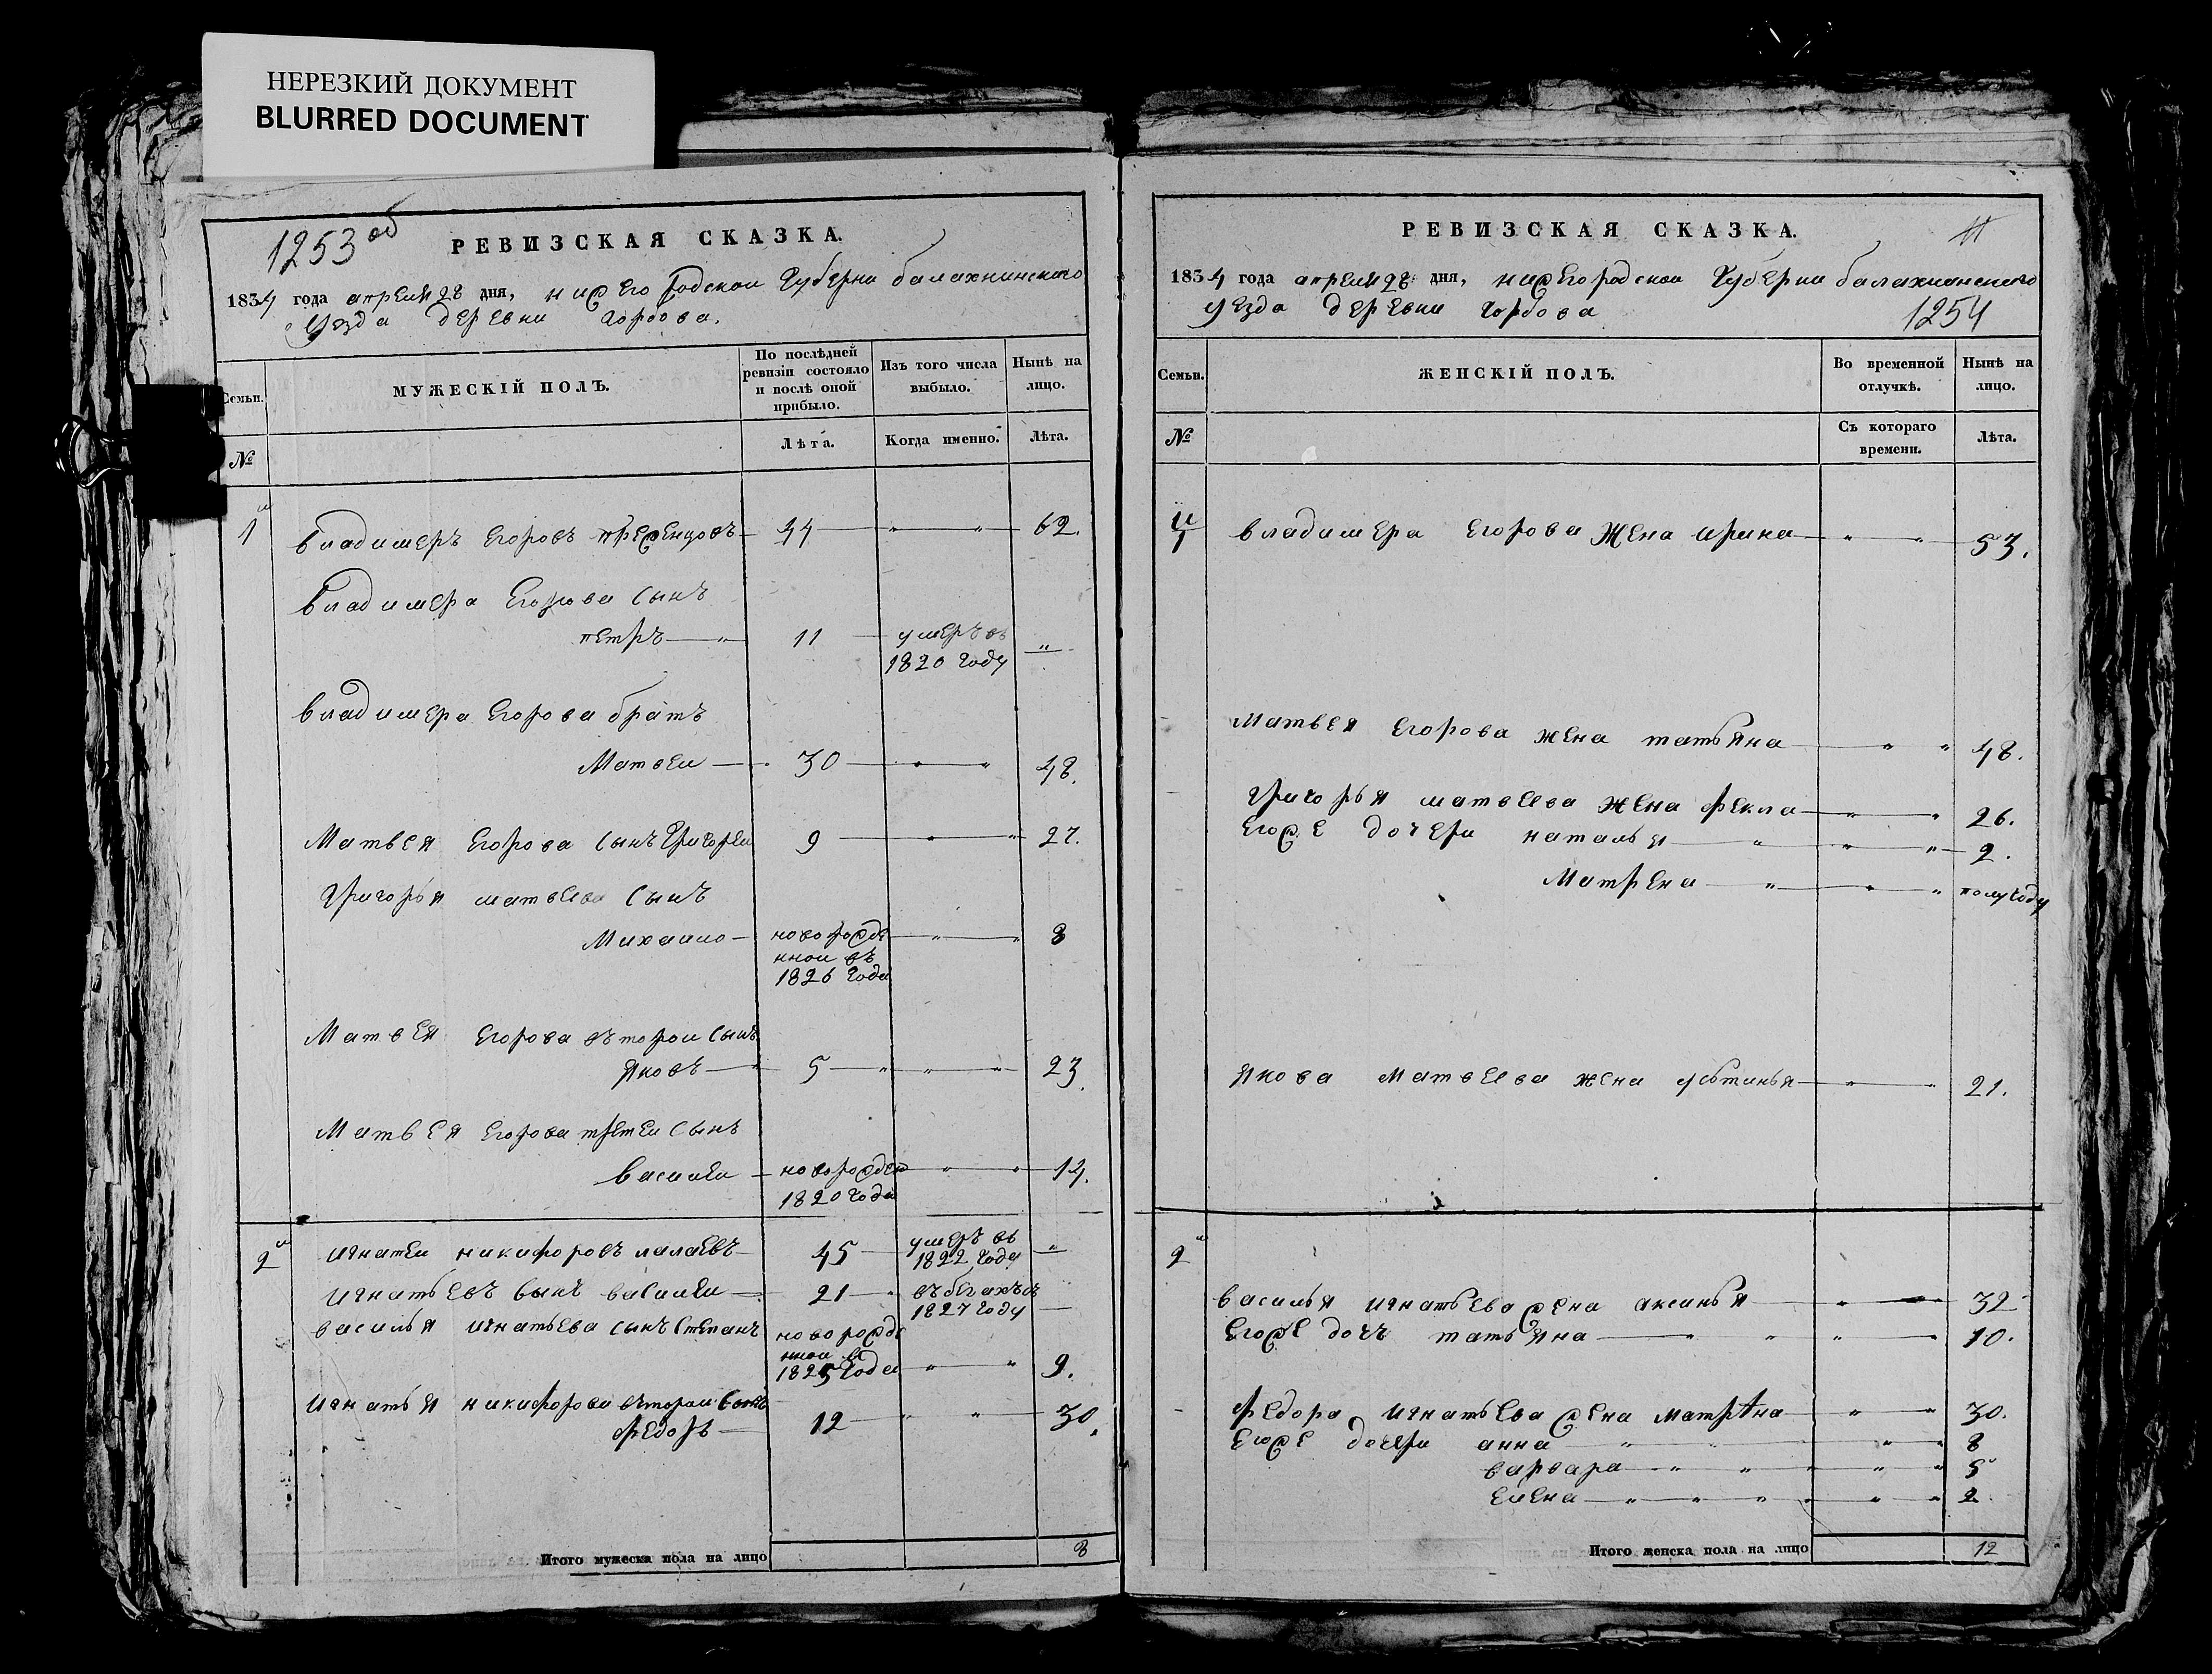 НЕРЕЗКИЙ ДОКУМЕНТ
BLURRED DOCUMENT
1253 об
РЕВИЗСКАЯ СКАЗКА.
1834 года апреля 28 дня, нижегородской губерни балахнинского
уезда деревни горбова.
Семьи.
МУЖЕСКІЙ ПОЛЪ.
По послѣдней ревизіи состояло и послѣ оной прибыло.
Изъ того числа выбыло.
Нынѣ на лицо.
№
Лѣта.
Когда именно.
Лѣта.
1й владимеръ Егоровъ 44 " " 62.
владимера Егорова сынъ
петръ " 11 умеръ въ "
1820 году
владимера Егорова братъ
Матвеи 30 " " 48.
Матвея Егорова сынъ григореи 9 " " 27.
григорья матвеева сынъ
Михаило новорожде " " 8
нной въ
1826 года
Матвея Егорова второи сынъ
Яковъ 5 " " " 23.
Матвея Егорова третеи сынъ
василеи новорожден " " 14.
1820 года
2й игнатеи никифоровъ лалаевъ 45 умеръ въ "
1822 году
игнатьевъ сынъ василеи 21 въ бегахъ съ
1827 году
василья игнатьева сынъ степанъ новорожде
нной въ
1825 года " " 9.
игнатья никифорова второи сынъ
федоръ 12 " " 30.
Итого мужеска пола на лицо 8
РЕВИЗСКАЯ СКАЗКА.
1834 года апреля 28 дня, нижегородской губерни балахнинского
уезда деревни горбова
1254
Семьи.
ЖЕНСКІЙ ПОЛЪ.
Во временной отлучкѣ.
Нынѣ на лицо.
№
Съ котораго времени.
Лѣта.
1 владимера Егорова жена ирина " " 53.
Матвея Егорова жена татьяна " " 48.
григорья матвеева жена фекла " " 26.
Егоже дочери наталья " " " 2.
Матрена " " " полугоду
Якова матвеева жена устинья " " 21.
2й
василья игнатьева жена аксинья " 32
Егоже дочь татьяна " " " " 10.
федора игнатьева жена матрена " " 30.
Егоже дочери анна " " " 8
варвара " " " " " 5
елена " " " " " " 2
Итого женска пола на лицо 12